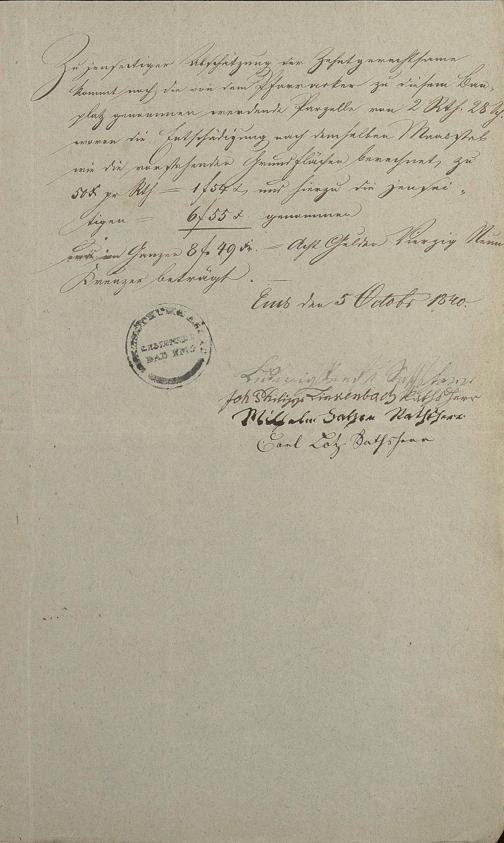 Zu jenseitiger Abschätzung der Zehntgerechtsame
kommt noch die von dem Pfarracker zu diesem Bau-
platz genommen werdende Parzelle von 2 Rth: 28
wovon die Entschädigung nach demselben Maasstab
wie die vorstehenden Grundflächen berechnet, zu
50 x pr Rth = 1 f 54 x, und hierzu die jensei-
tigen = 6 f 55 x genommen
im Ganzen 8 f 49 x. = Acht Gulden Vierzig Neun
Kreuzer beträgt.
Ems den 5 Octobr 1840.
GEMEINDE
BAD EMS
Ludwig
Joh Philipp Linkenbach Rathsherr
Wilhelm Rathsherr
Carl Lotz Rathsherr